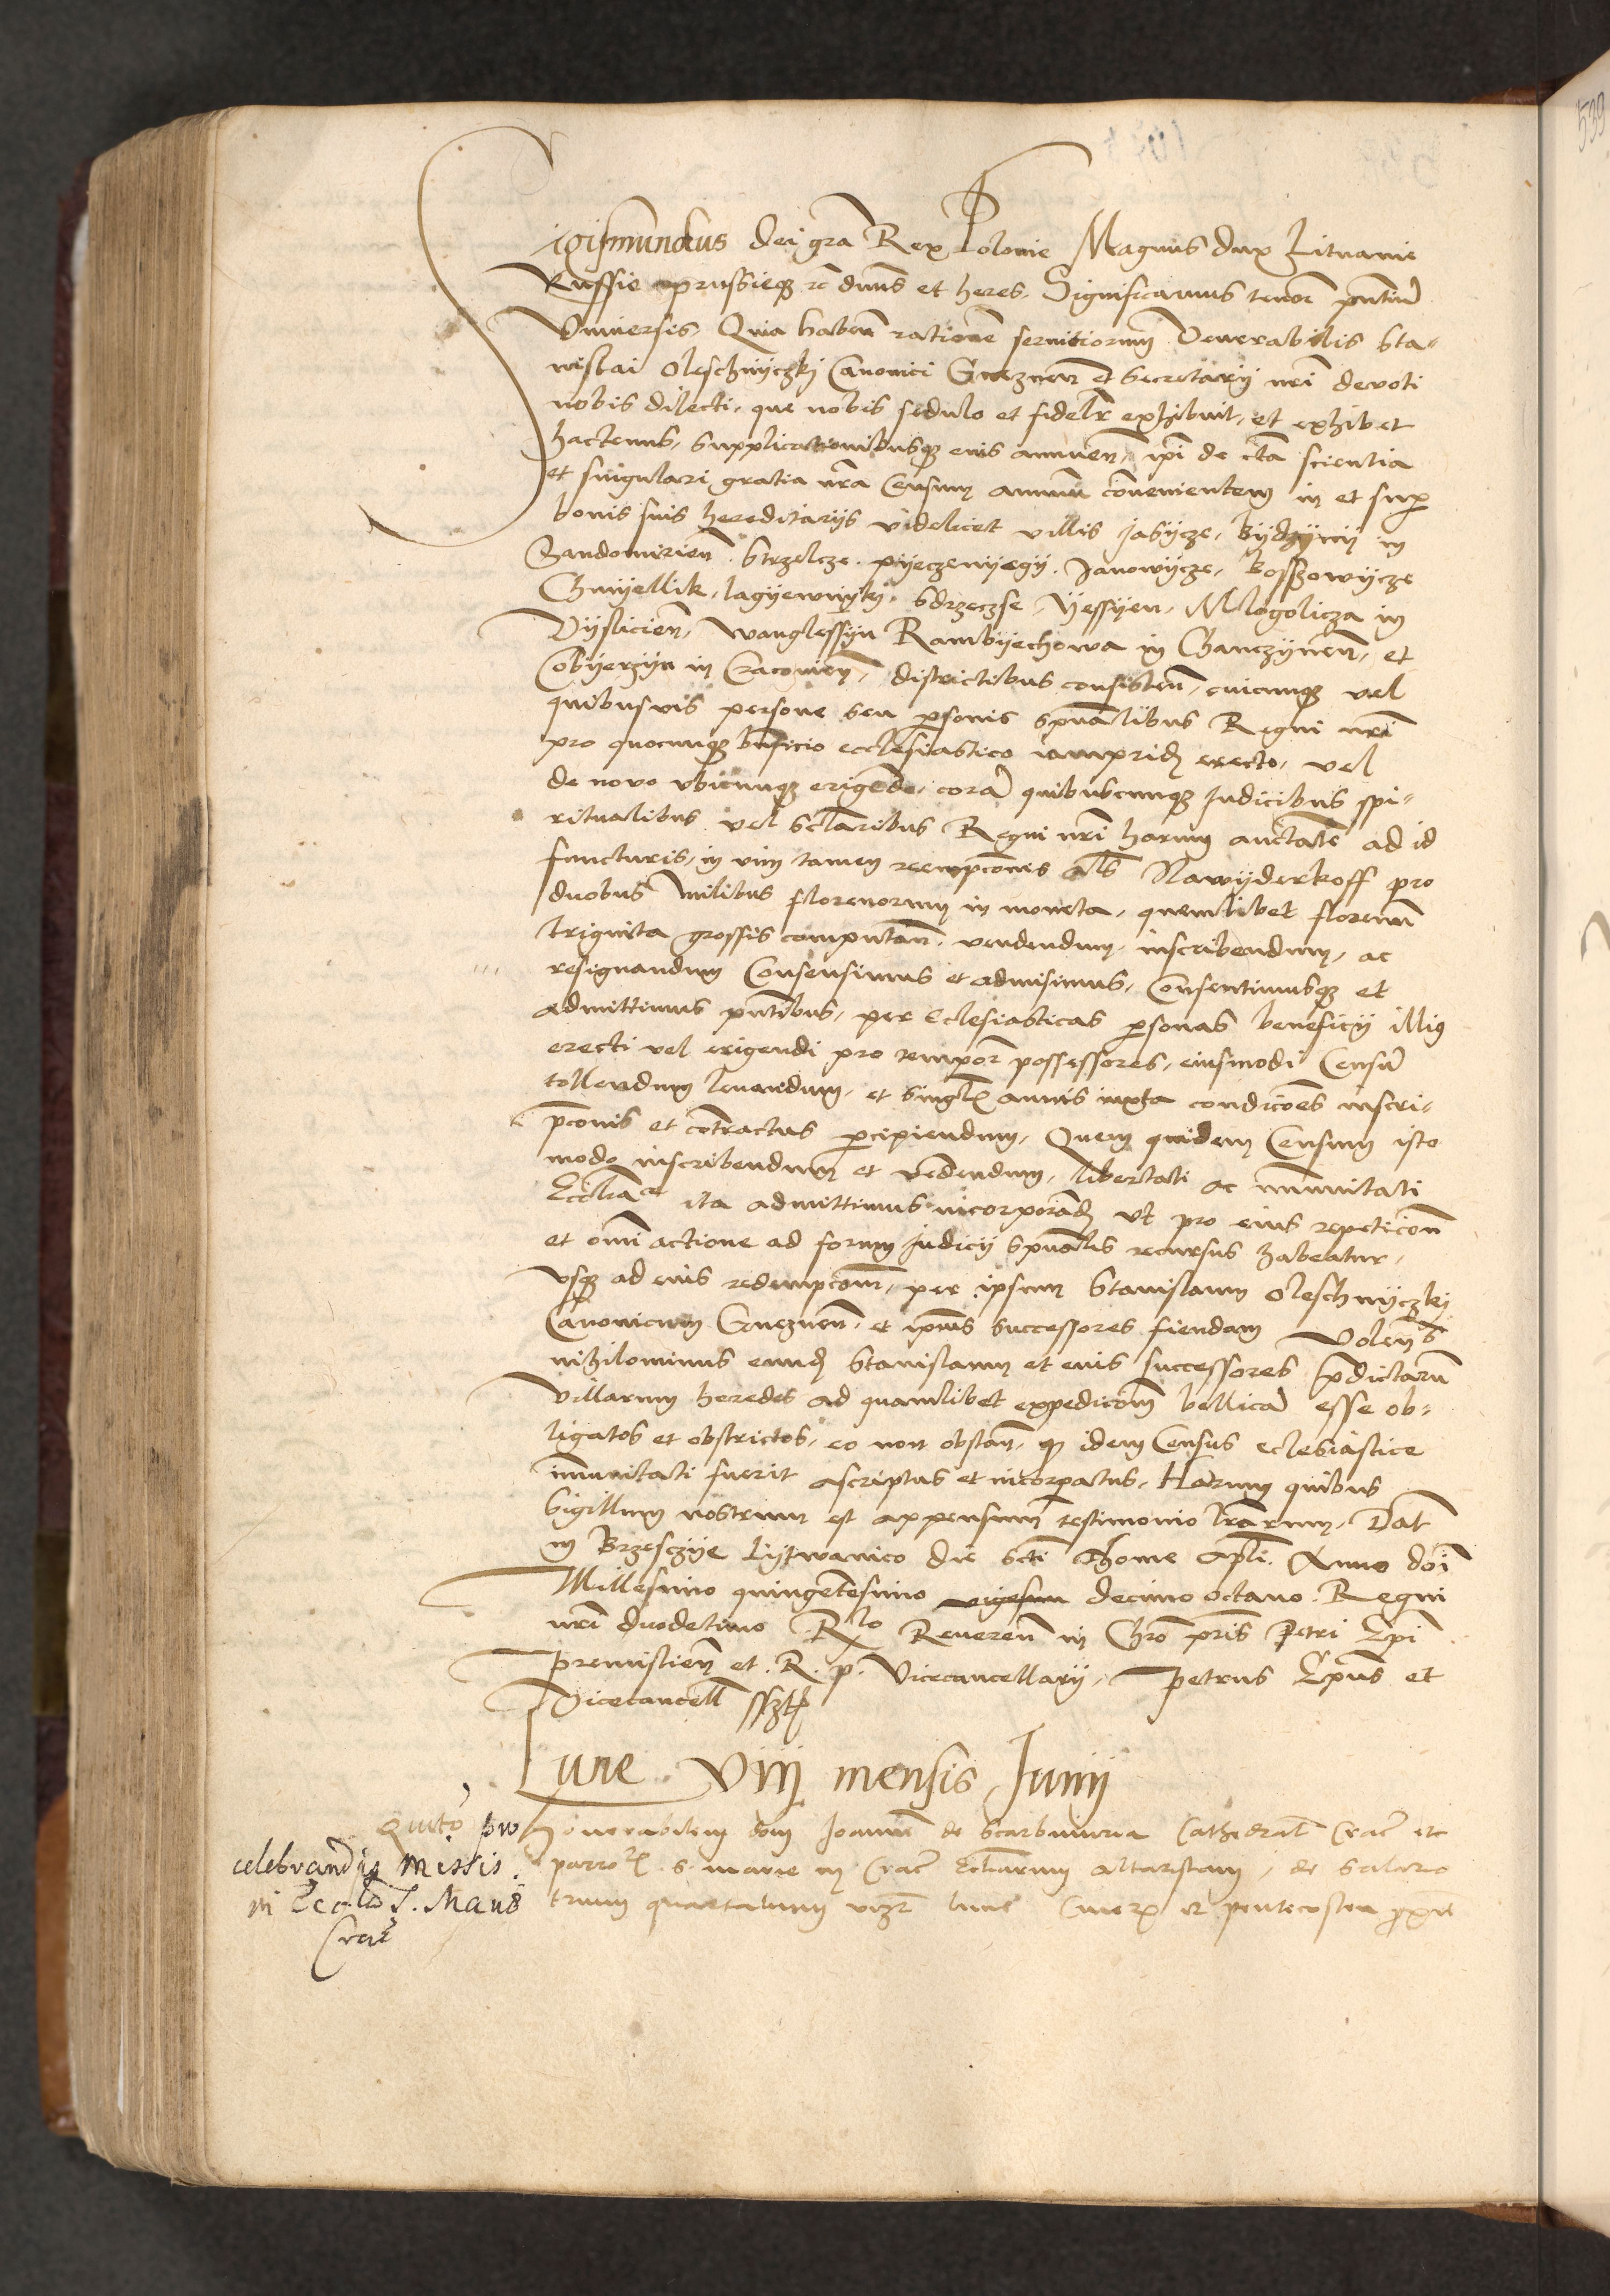 Sigismundus dei gra Rex Polonie Magnus dux Lituanie
Russie prussieq3 rc dnus et heres. Significamus tenore pntium
Vniuersis. Quia haben rationem seruitiorum Venerabilis Sta-
nislai Oleschnyczky Canonici Gneznen et Secretarij nri deuoti
nobis dilecti, que nobis sedulo et fidelr exhibuit, et exhibet
hactenus, supplicationibusq3 eius annuen, ipi de cta scientia
et singulari gratia nra Censum annuum conuenientem in et sup
bonis suis hereditarijs videlicet villis Jasycze, Bydzyny in
Sandomirien. Strzelcze. pyeczenyegy. Janowycze, Kossowycze
Chmyellik, lagyewnyky, Sdrzeczse, Yessyen, Mlogolicza in
Vyslicien, Wanglessyn Rambyechowa in Chanczynen, et
Cobyerzyn in Cracouien, districtibus consisten, cuicunq3 vel
quibusuis persone seu personis spualibus Regni nri
pro quocunq3 bnficio ecclesiastico iampridem erecto, vel
de nouo vbicunq3 erigendo, coram quibuscunq3 Iudicibus spi-
ritualibus vel sclaribus Regni nri harum auctate ad id
functuris, in vim tamen reempconis als Nawyderkoff pro
duobus milibus florenorum in moneta, quemlibet florenum
triginta grossis computan. vendendum, inscribendum, ac
resignandum Consensimus et admisimus, Consentimusq3 et
admittimus pntibus, per Eclesiasticas personas beneficij illius
erecti vel erigendi pro tempore possessores, eiusmodi Censum
tollendum leuandum, et singlis annis iuxta condicones inscri-
pconis et contractus percipiendum, Quem quidem Censum isto
modo inscribendum et vendendum, libertati ac immunitati
Ecclia ita admittimus incorporand vt pro eius repeticone
et omi actione ad forum Iudicij spualis recursus habeatur,
vsq3 ad eius redempconem, per ipsum Stanislaum Oleschnyczky
Canonicum Gneznen. et ipius successores fiendam Volens
nihilominus eundem Stanislaum et eius successores predictarum
villarum heredes ad quamlibet expediconem bellicam esse ob-
ligatos et obstrictos, eo non obstan. q3 idem Census eclesiastice
immunitati fuerit ascriptus et incorporatus, Harum quibus
Sigillum nostrum est appensum testimonio lrarum. Dat
in Brzesczye Lytwanico die scti Thome apli. Anno doi
Millesimo quingentesimo vigesim decimo octauo. Regni
nri duodecimo Rlo Reueren in Chro pris Petri Epi
premislien et. R. p. Vicecancellarij, Petrus Epus et
Vicecancell sszt
Lune viij mensis Junij
quito pro
celebrandis missis
in Ecclia S. Marie
Crac
Honorabilem dom Joannem de Scarbimiria Cathedral Crac etc
parrolis S. marie in Crac Eccliarum altaristam, de salario
trium quartalium vizt lucie Cinerum et pentecosten proxime